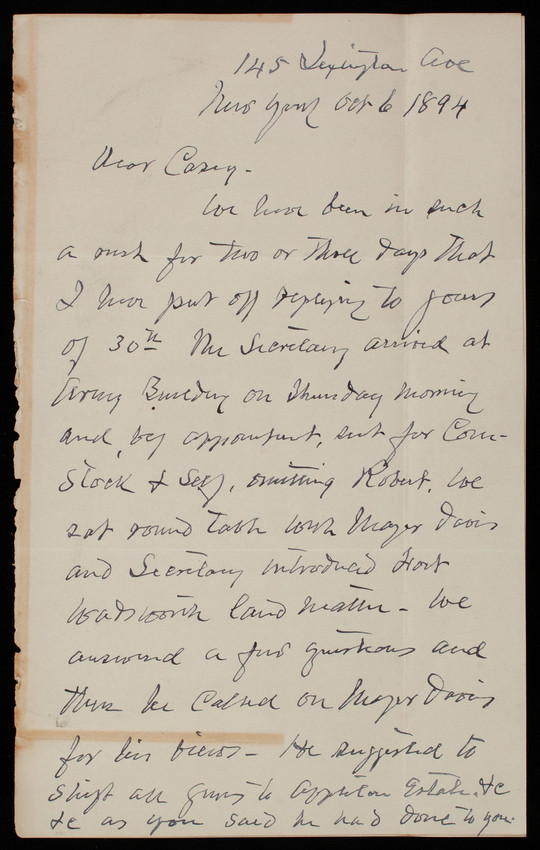 145 Lexington Ave
New York Oct 6 1894
Dear Casey -
We have been in such
a rush for two or three days that
I have put off replying to yours
of 30th The Secretary arrived at
Army Building on Thursday morning
and, by appointment, sent for Com-
stock & Self, omitting Robert. We
sat round table with Major Davis
and Secretary introduced Fort
Wadsworth land matter - We
answered a few questions and
then he called on Major Davis
for his views - He suggested to
shift all guns to Appleton Estate. &c
&c as you said he had done to you.